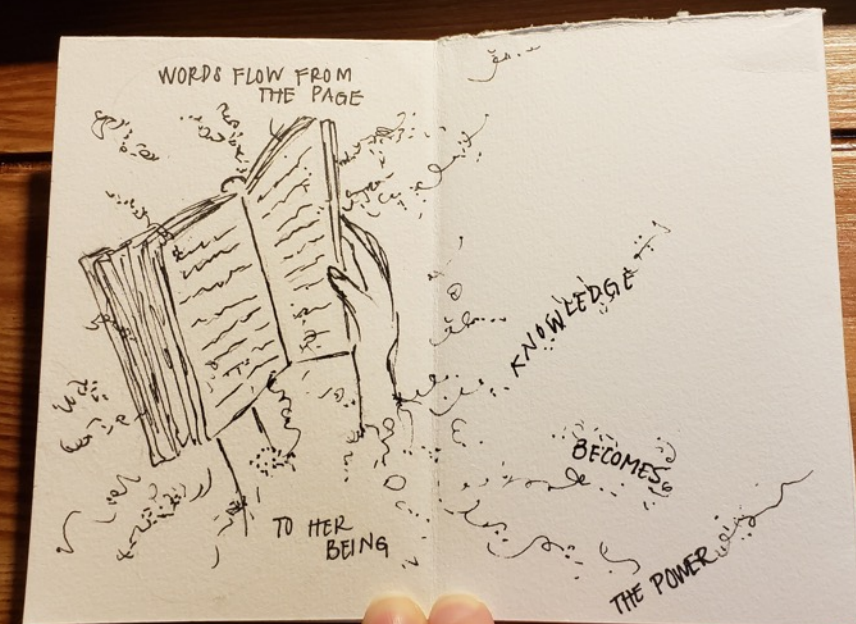 WORDS FLOW FROM
THE PAGE
TO HER
BEING
KNOWLEDGE
BECOMES
THE POWER